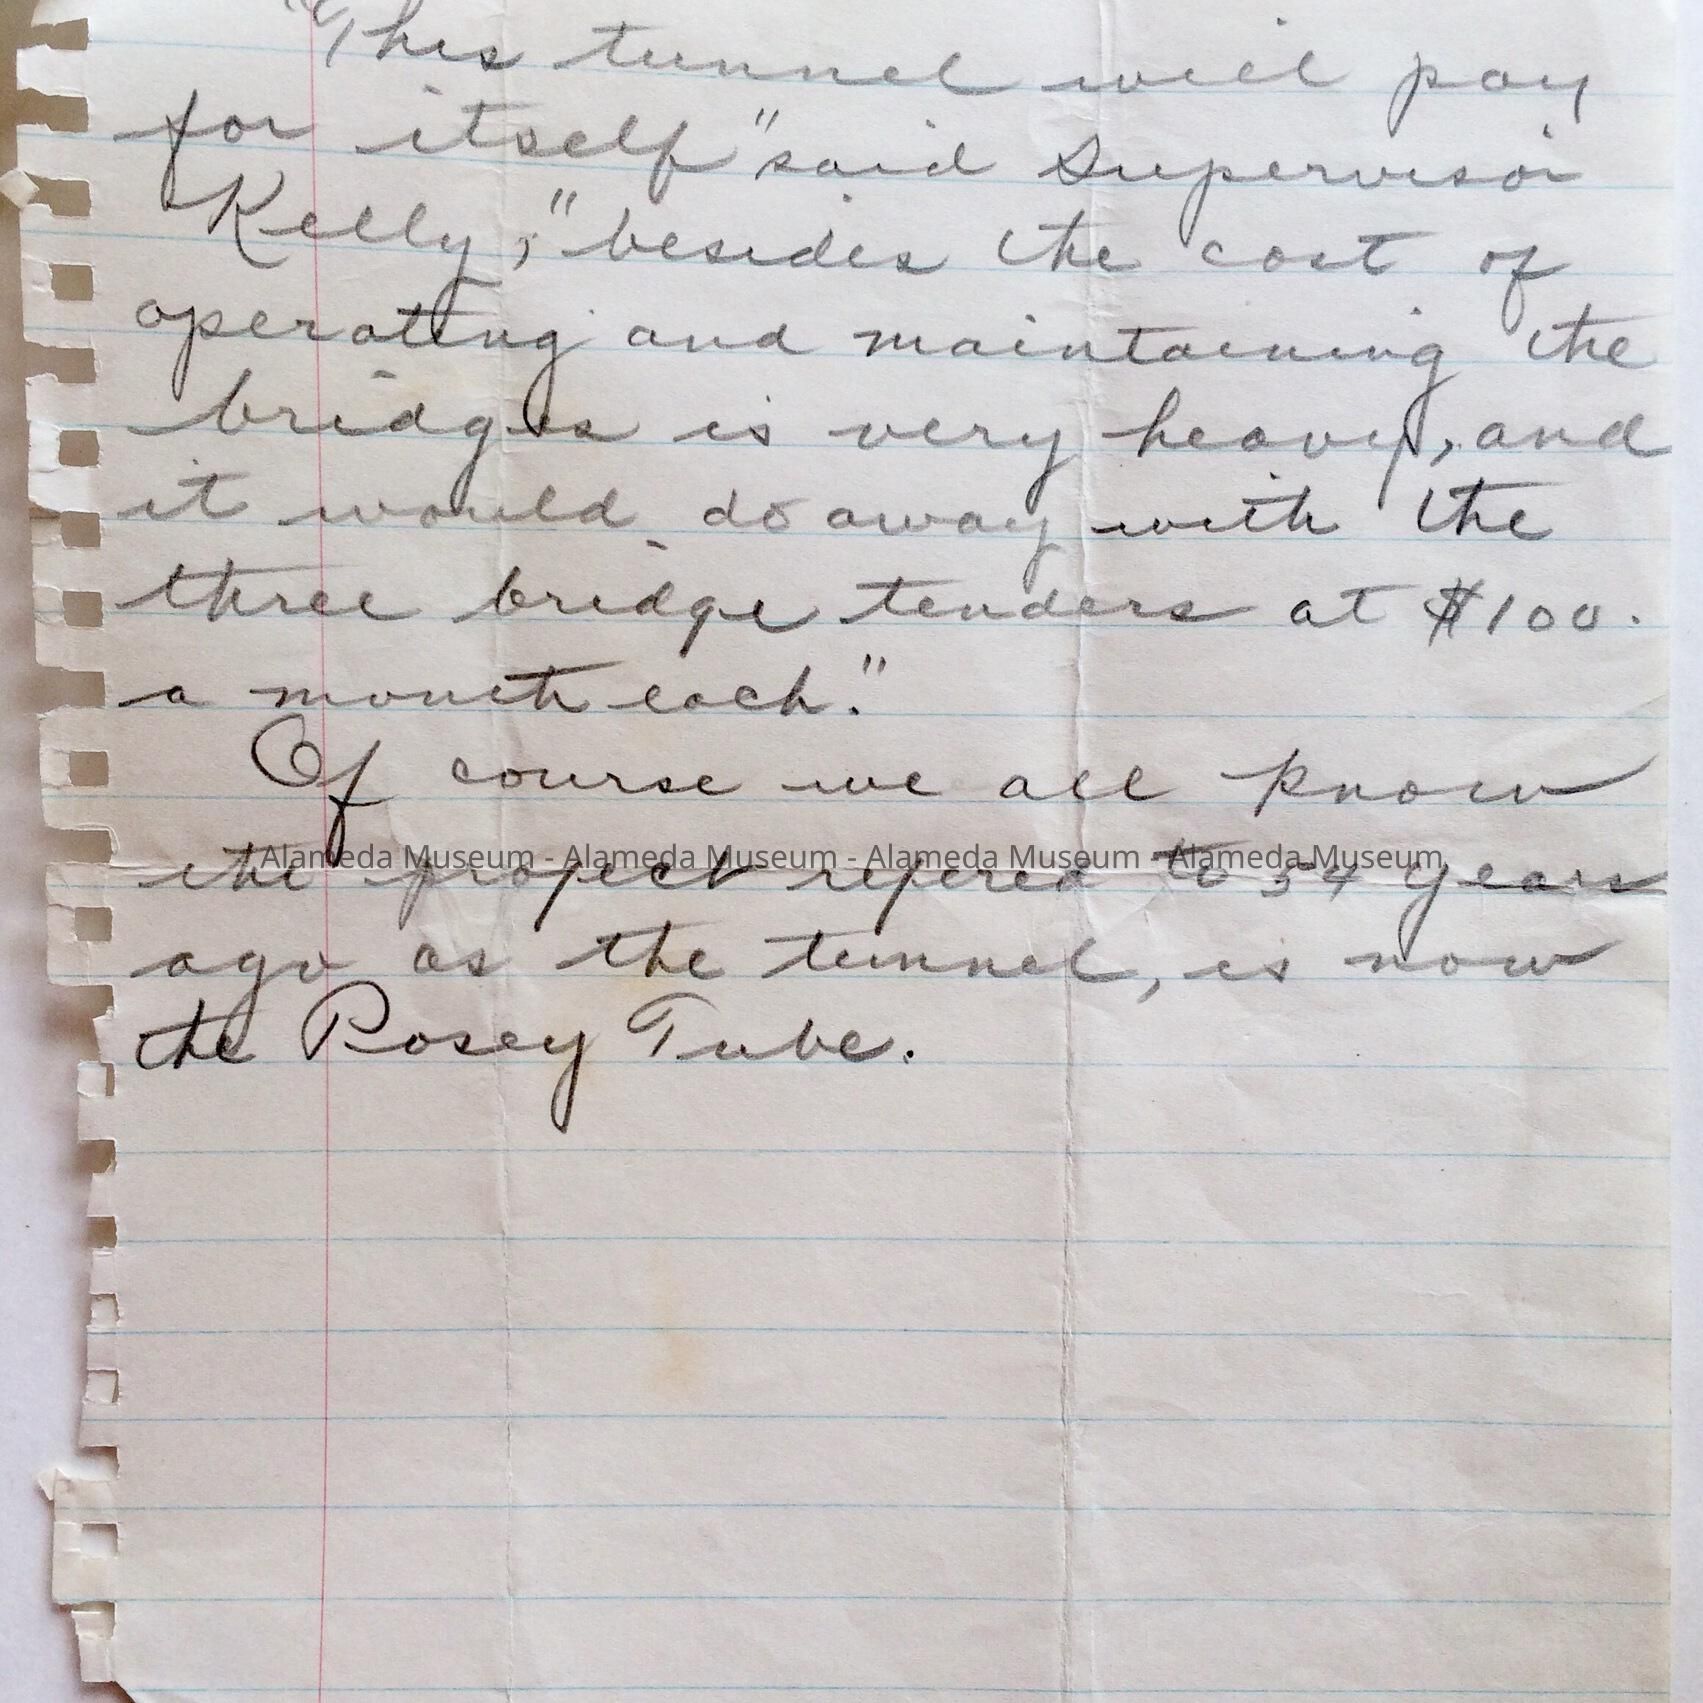 "This tunnel will pay
for itself" said Supervisor
Kelly; "besides the cost of
operating and maintaining the
bridges is very heavy, and
it would do away with the
three bridge tenders at $100.
a month each."
Of course we all know
the project refered to 54 years
ago as the tunnel, is now
the Posey Tube.
Alameda Museum - Alameda Museum - Alameda Museum - Alameda Museum